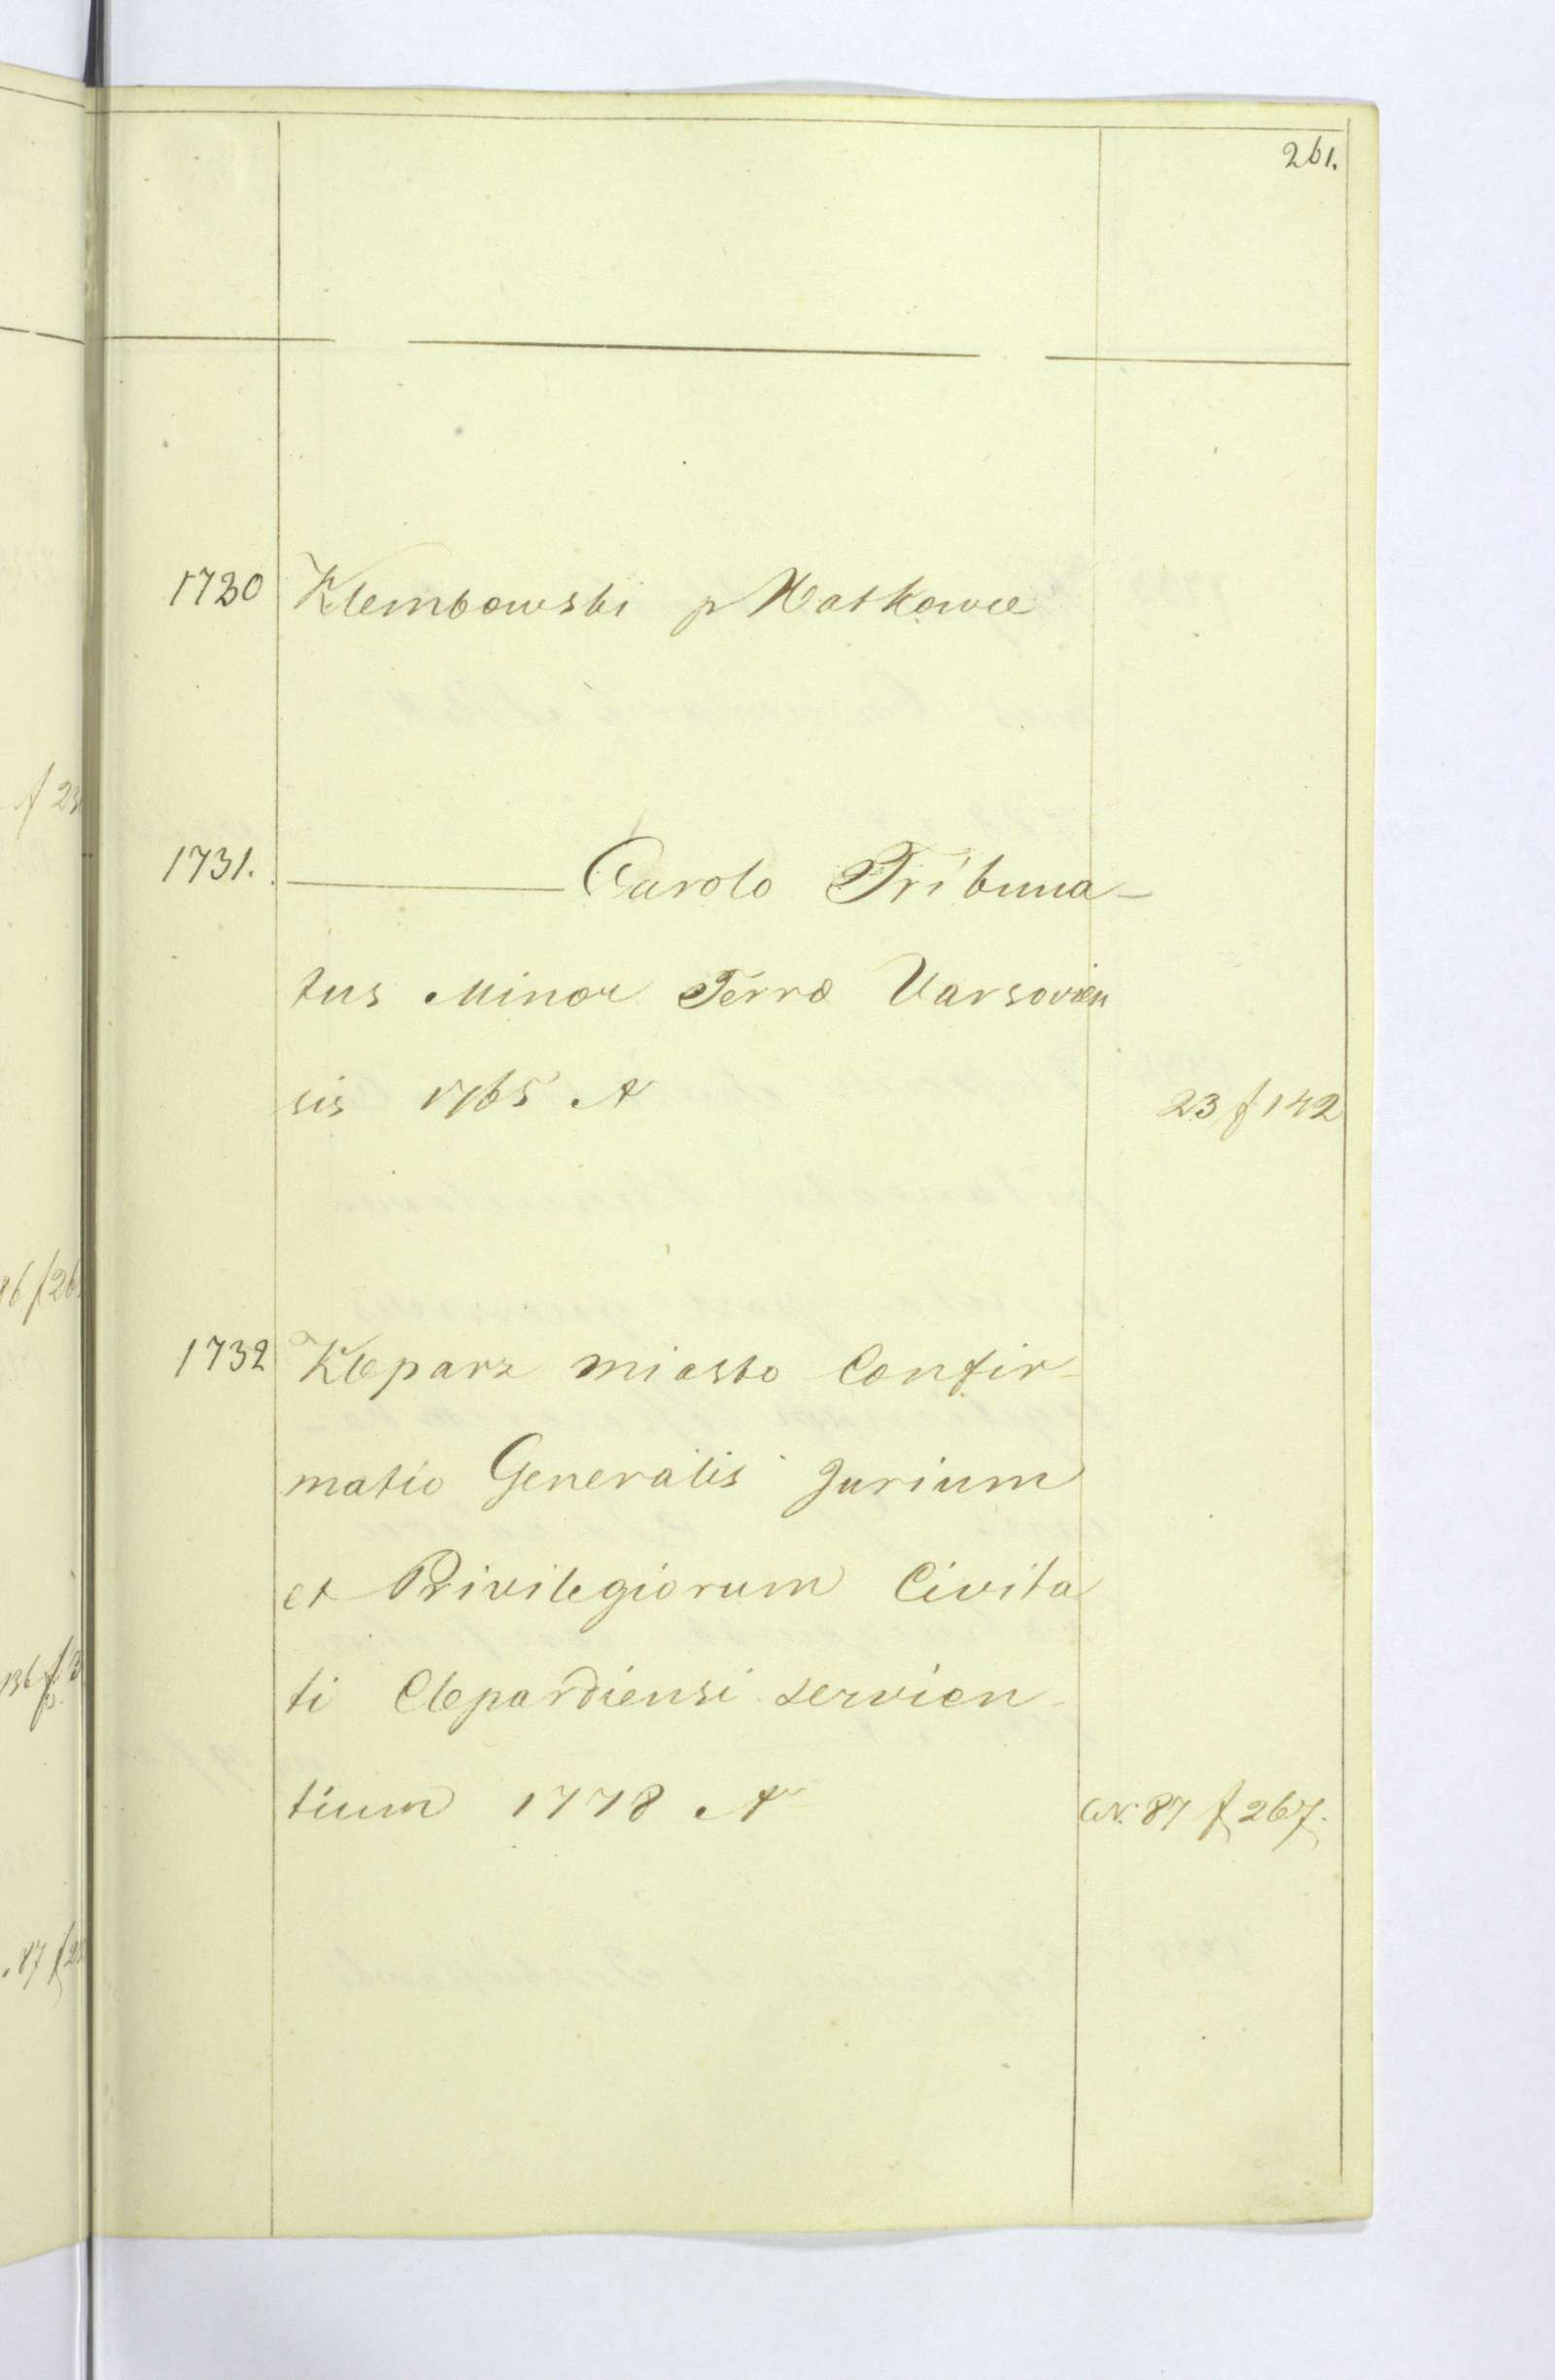 261.
1730 Klembowski p Waskowce
1731. ——— Carolo Tribuna-
tus Minor Terræ Varsovien
sis 1765 A 23 f 142
1732 Kleparz miasto Confir-
matio Generalis Jurium
et Privilegiorum Civita
ti Clepardiensi servien-
tium 1778 A W. 87 f 267.